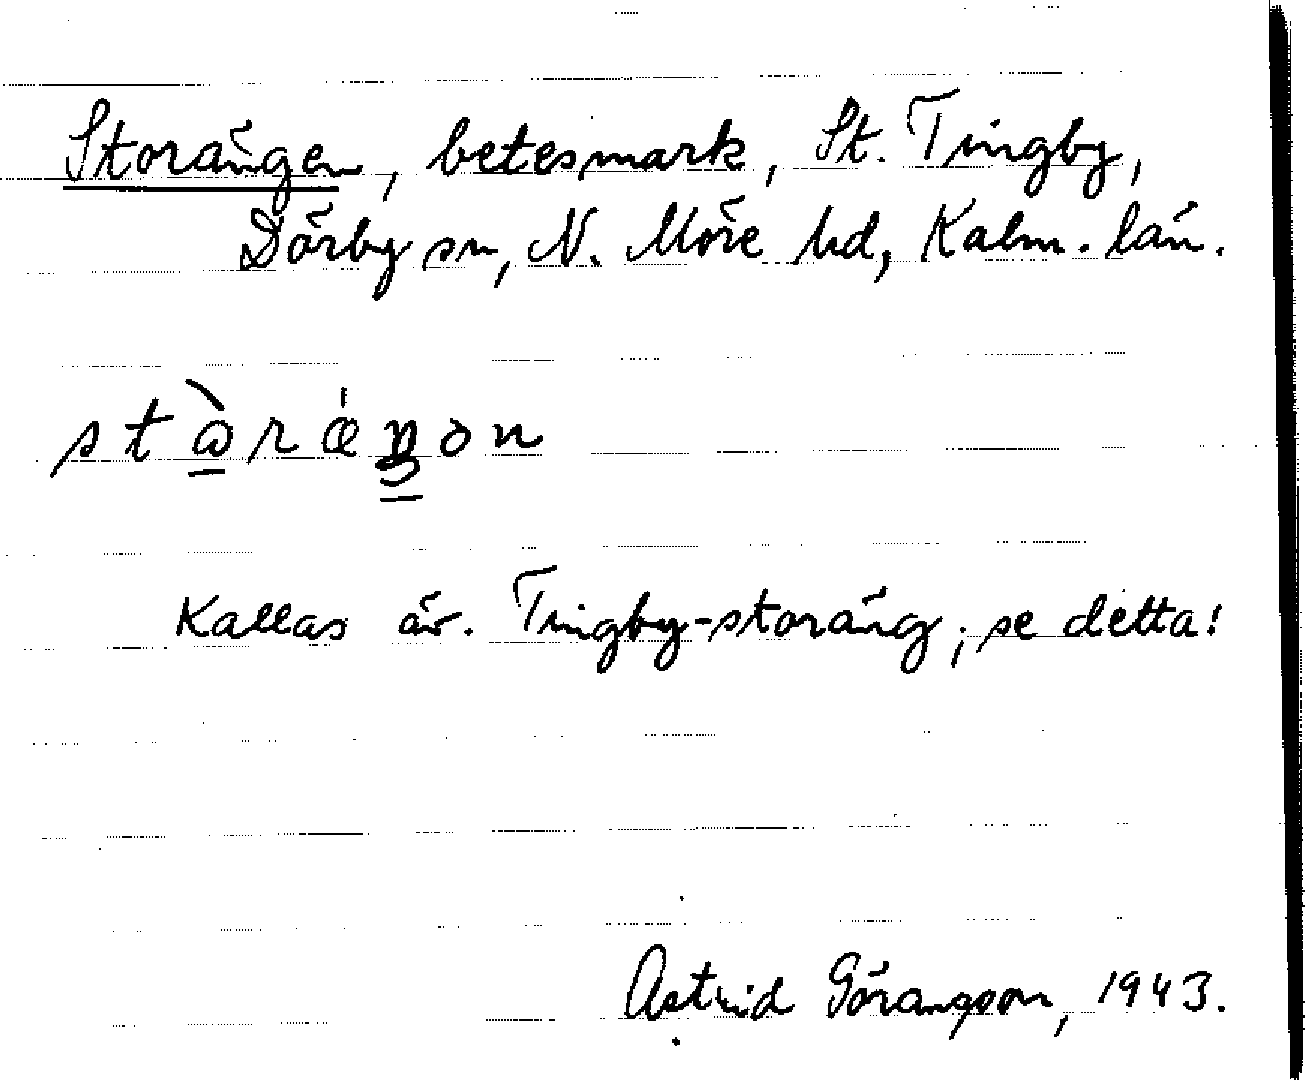 Storängen, betesmark, St. Tingby,
Dörby sn, N. Möre hd, Kalm. län.
Kallas äv. Tingby-storäng; se detta!
Astrid Göransson, 1943.